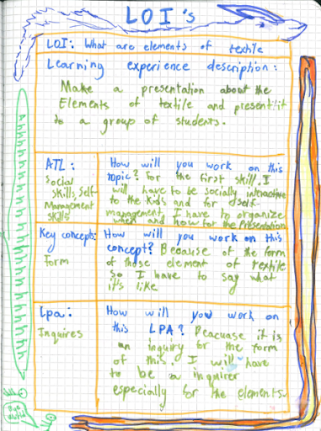 LOI's
LOI: What are elements of textile
Learning experience description:
Make a presentation about the
Elements of textile and present it
to a group of students.
ATL:
Social
Skills, Self-
Management
Skills
How will you work on this
topic? For the first skill, I
will have to be socially interactive
to the kids and for self-
management, I have to organize
work and how for the Presentation
Key concept:
Form
How will you work on this
concept? Because of the form
of those element of textile
so I have to say what
it's like
Lpa:
Inquires
How will you work on
this LPA? Beacuase it is
an inquiry for the form
of this. I will have
to be a inquirer
especially for the elements.